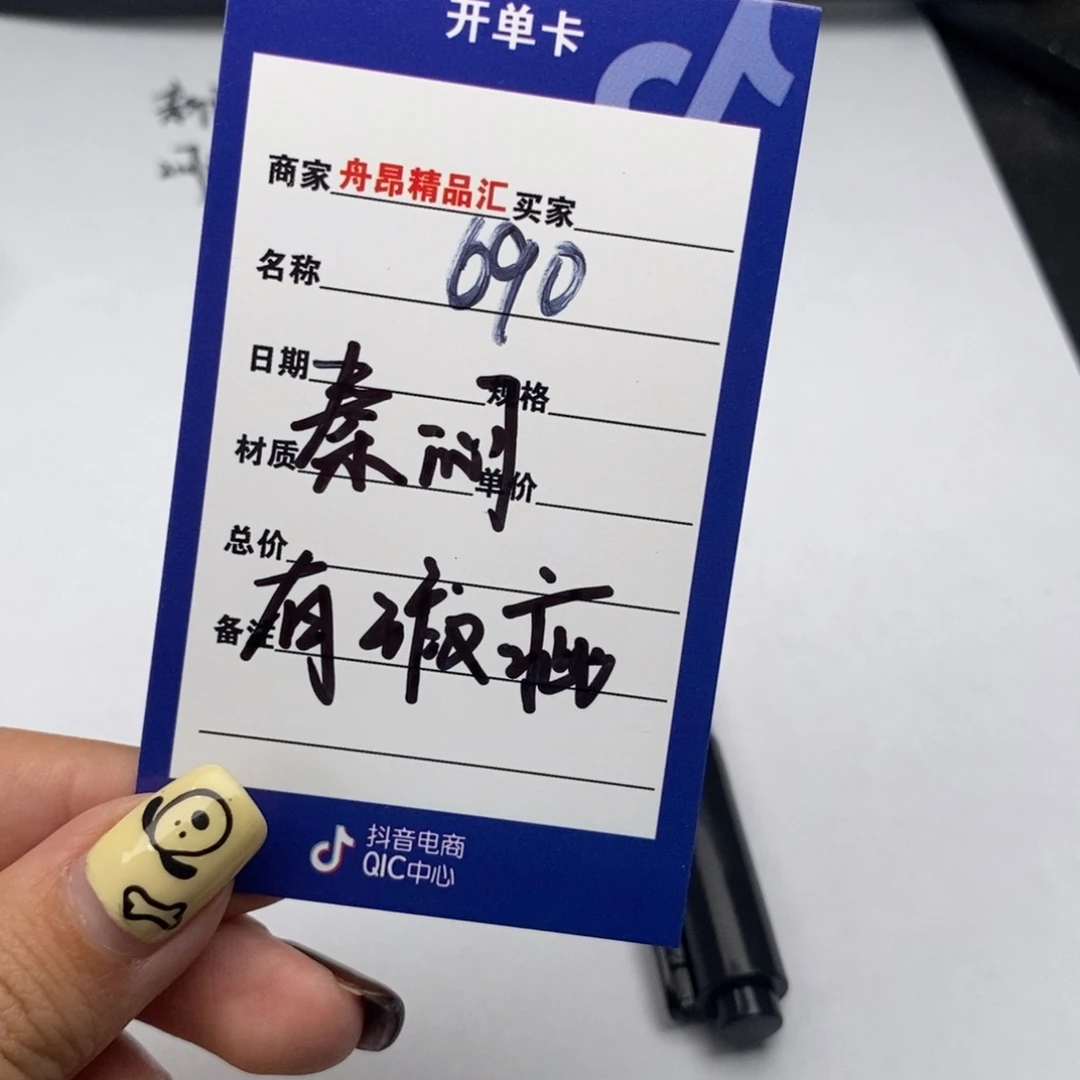 开单卡
商家 舟昂精品汇 买家
名称 690
日期 规格
秦
材质 单价
总价
有瑕疵
备注
抖音电商
QIC中心